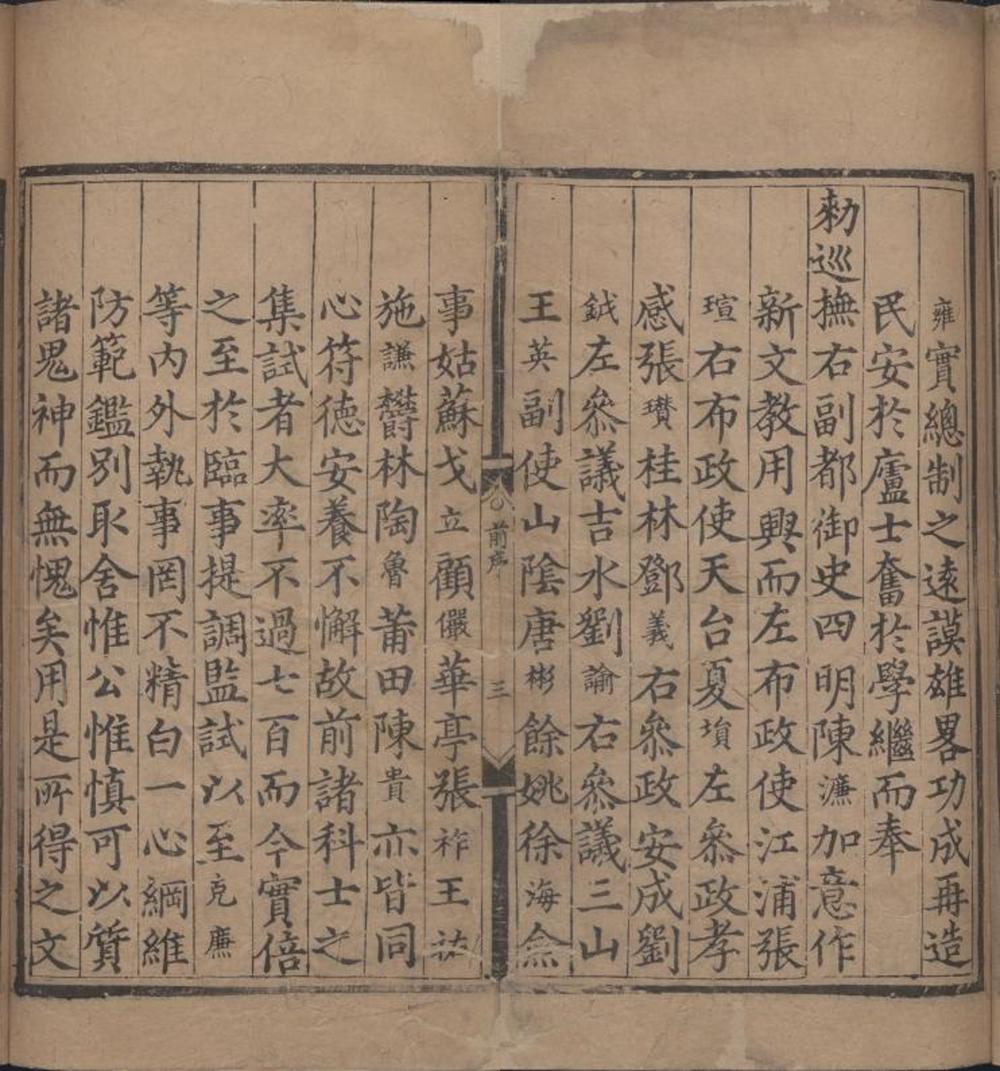 雍實總制之遠謨雄畧功成再造
民安於廬士奮於學繼而奉
勑巡撫右副都御史四明陳濂加意作
新文教用興而左布政使江浦張
瑄右布政使天台夏塤左叅政孝
感張瓚桂林鄧義右叅政安成劉
鉞左叅議吉水劉諭右叅議三山
王英副使山隂唐彬餘姚徐海僉
前序
三
事姑蘇戈立顧儼華亭張祚王
施謙欝林陶魯莆田陳貴亦皆同
心符德安養不懈故前諸科士之
集試者大率不過七百而今實倍
之至於臨事提調監試以至克廉
等內外執事罔不精白一心綱維
防範鑑別取舍惟公惟慎可以質
諸鬼神而無愧矣用是所得之文